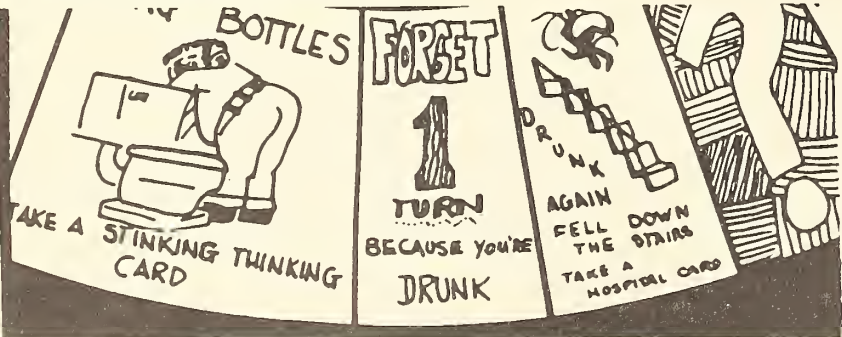 BOTTLES
TAKE A STINKING THINKING
CARD
FORGET
1
TURN
BECAUSE YOU'RE
DRUNK
DRUNK
AGAIN
FELL DOWN
THE STAIRS
TAKE A
HOSPITAL CARD
?